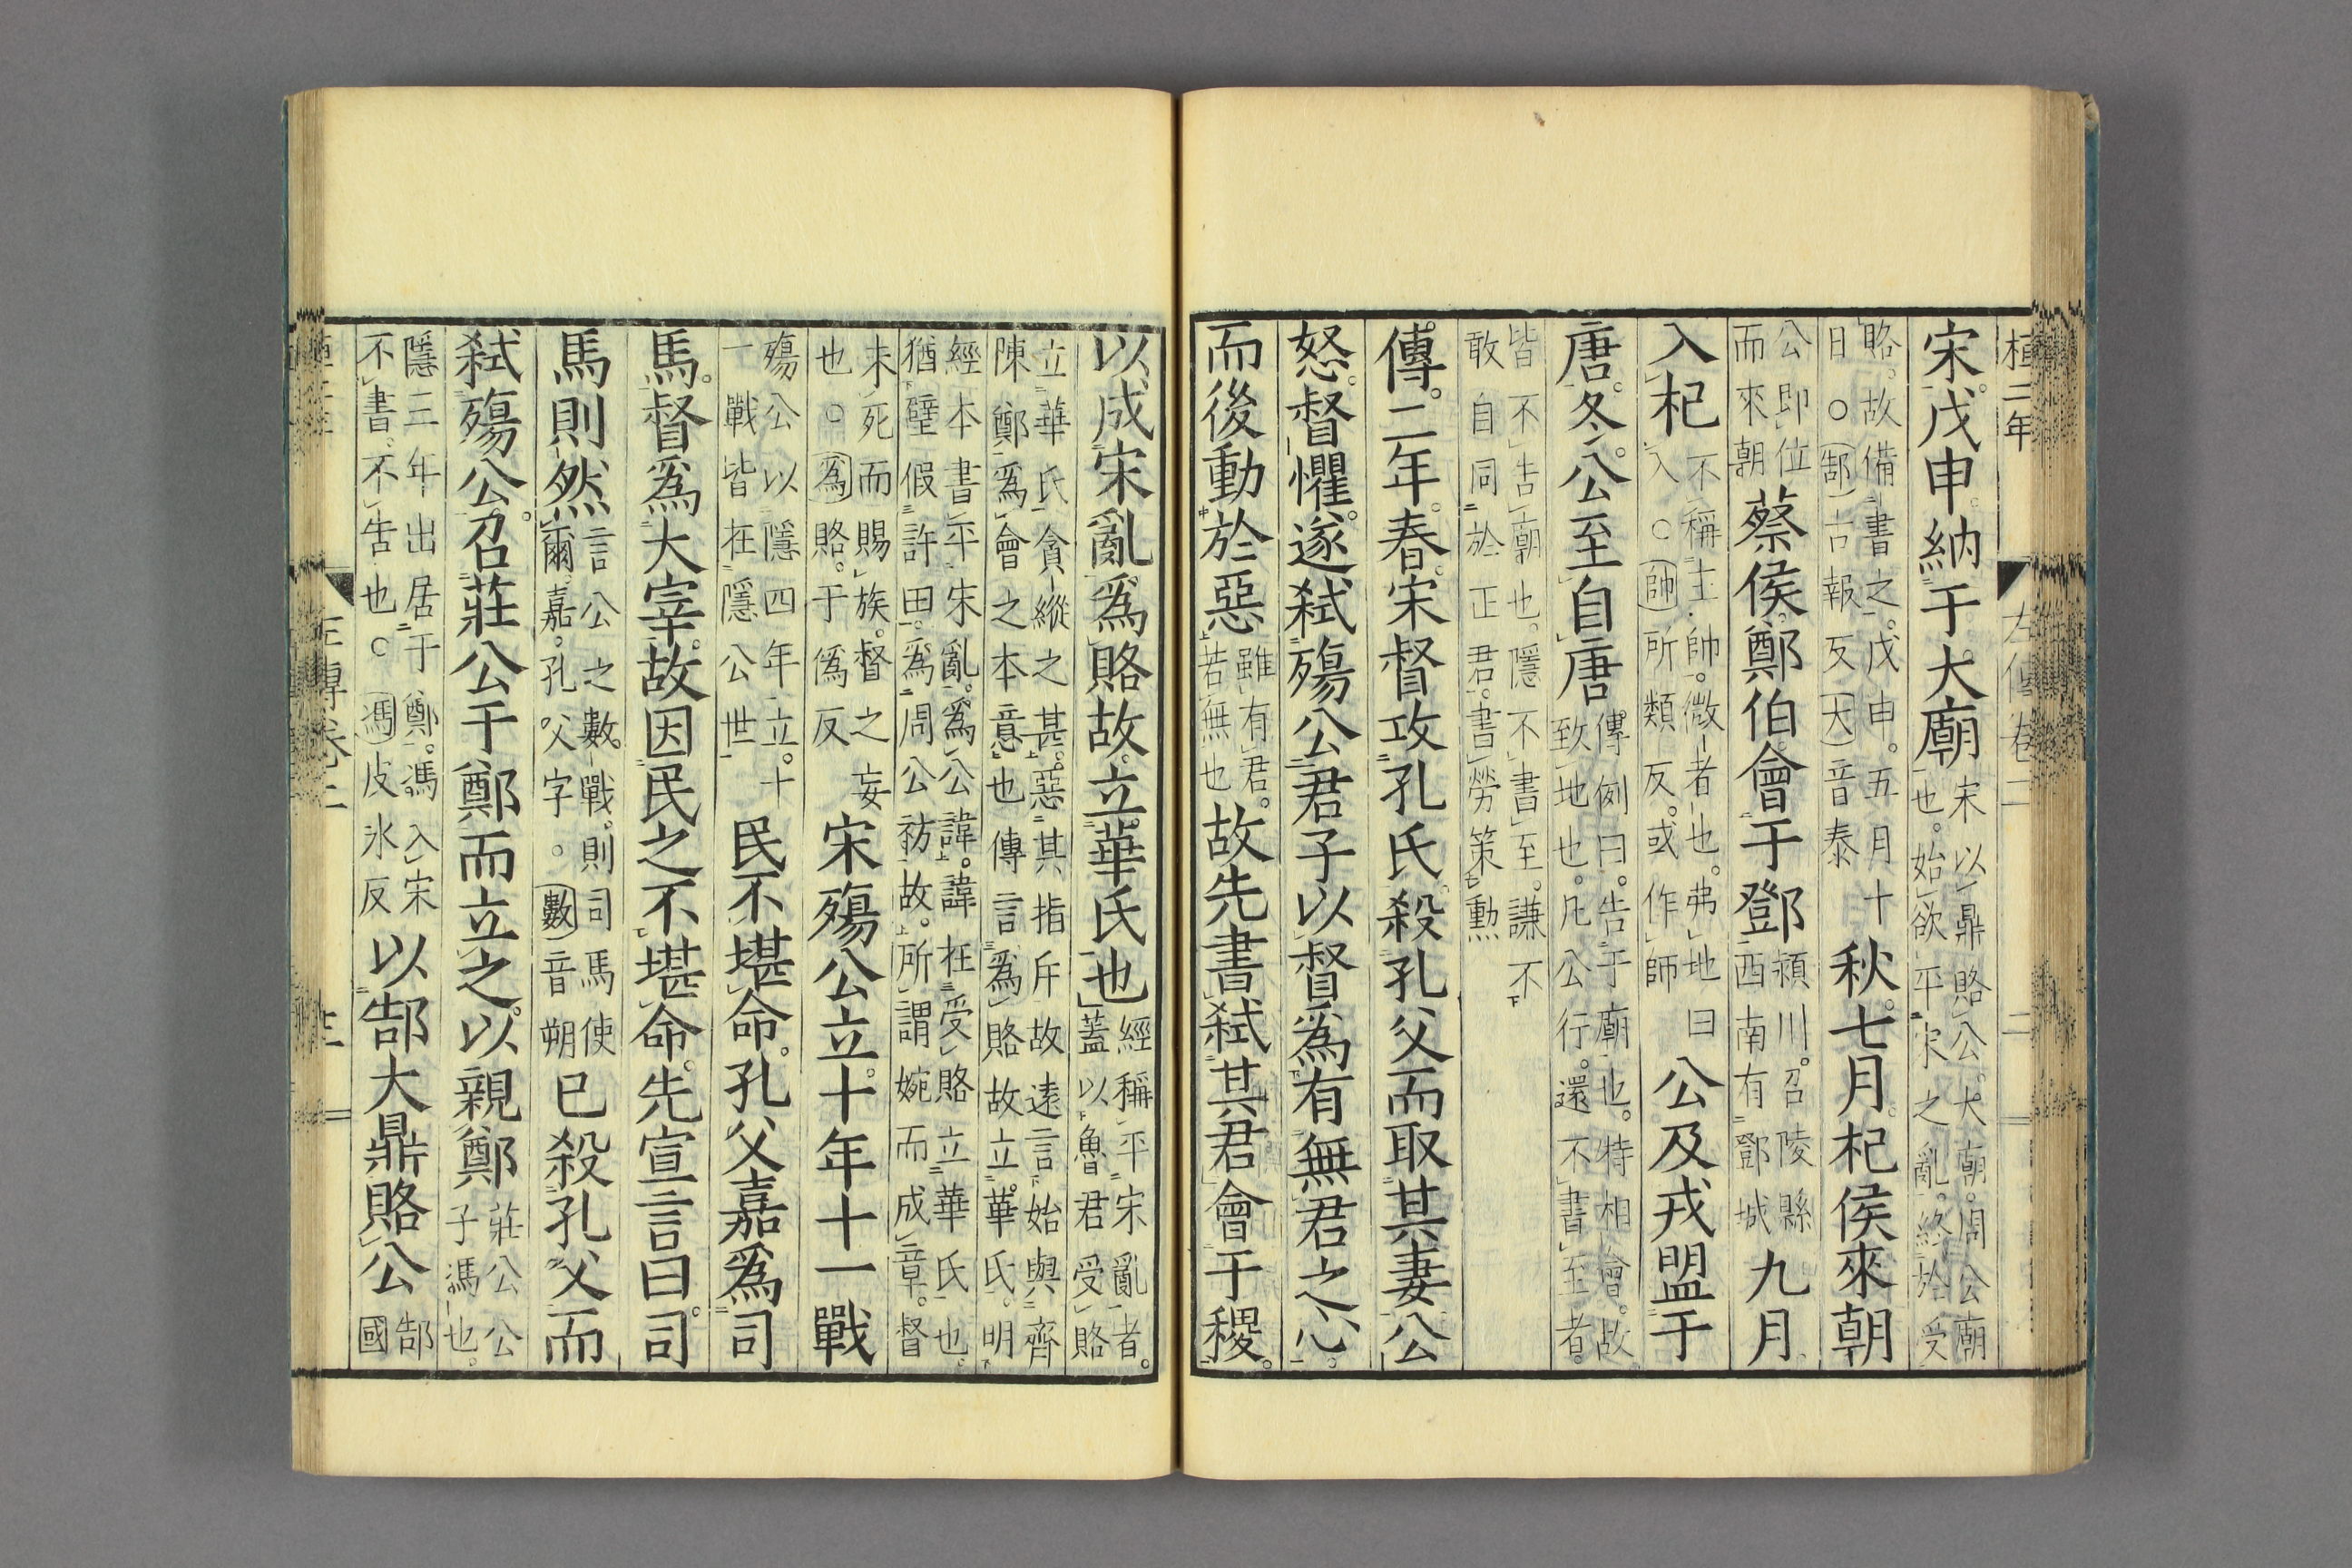 桓二年 左傳卷二 二
宋。戊申。納于大廟宋以鼎賂公。大廟。周公廟也。始欲平宋之亂。終於受
賂。故備書之。戊申。五月十日○郜古報反大音泰秋。七月。杞侯來朝
公即位而來朝蔡侯鄭伯會于鄧潁川。召陵縣西南有鄧城九月
入杞不稱主帥。微者也。弗地曰入○帥所類反。或作師公及戎盟于
唐。冬。公至自唐傳例曰。告于廟也。特相會。故致地也。凡公行。還不書至者。
皆不告廟也。隱不書至。謙不敢自同於正君。書勞策勳
傳。二年。春。宋督攻孔氏。殺孔父而取其妻公
怒。督懼。遂弑殤公。君子以督爲有無君之心。
而後動於惡雖有君。若無也故先書弑其君。會于稷。
以成宋亂爲賂故。立華氏也經稱平宋亂者。蓋以魯君受賂
立華氏。貪縱之甚。惡其指斥。故遠言始與齊陳鄭爲會之本意也傳言爲賂故立華氏。明
經本書平宋亂。爲公諱。諱在受賂立華氏也。猶璧假許田。爲周公祊故。所謂婉而成章。督
未死而賜族。督之妄也○爲賂。于僞反宋殤公立。十年十一戰
殤公以隱四年立。十一戰皆在隱公世民不堪命。孔父嘉爲司
馬。督爲大宰。故因民之不堪命。先宣言曰。司
馬則然言公之數戰。則司馬使爾。嘉。孔父字。○數音朔已殺孔父而
弑殤公。召莊公于鄭而立之。以親鄭莊公公子馮也。
隱三年出居于鄭。馮入宋不書。不告也○馮皮冰反以郜大鼎賂公郜國
左傳卷二